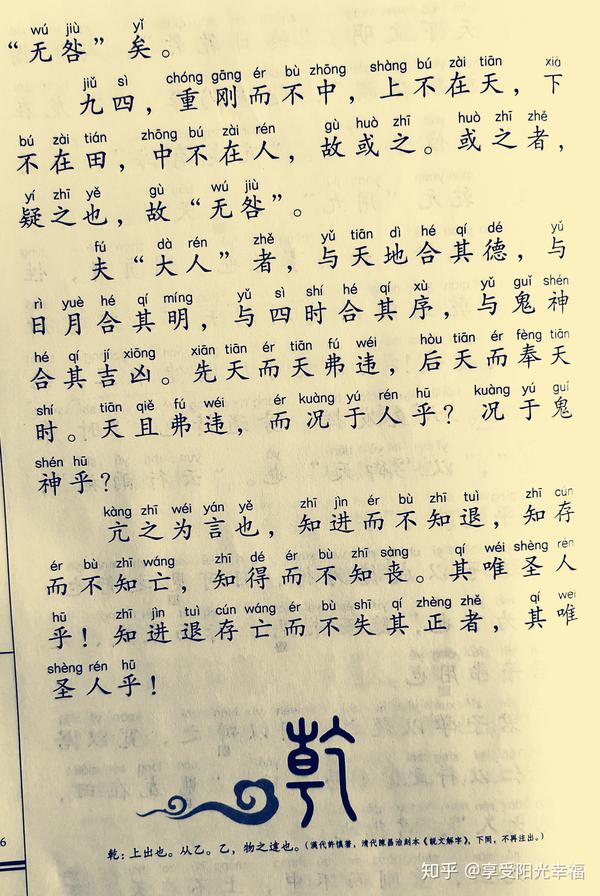 wú jiù yǐ
“无咎”矣。
jiǔ sì chóng gāng ér bù zhōng shàng bú zài tiān xià
九四，重刚而不中，上不在天，下
bú zài tián zhōng bú zài rén gù huò zhī huò zhī zhě
不在田，中不在人，故或之。或之者，
yí zhī yě gù wú jiù
疑之也，故“无咎”。
fú dà rén zhě yǔ tiān dì hé qí dé yǔ
夫“大人”者，与天地合其德，与
rì yuè hé qí míng yǔ sì shí hé qí xù yǔ guǐ shén
日月合其明，与四时合其序，与鬼神
hé qí jí xiōng xiān tiān ér tiān fú wéi hòu tiān ér fèng tiān
合其吉凶。先天而天弗违，后天而奉天
shí tiān qiě fú wéi ér kuàng yú rén hū kuàng yú guǐ
时。天且弗违，而况于人乎？况于鬼
shén hū
神乎？
kàng zhī wéi yán yě zhī jìn ér bù zhī tuì zhī cún
亢之为言也，知进而不知退，知存
ér bù zhī wáng zhī dé ér bù zhī sàng qí wéi shèng rén
而不知亡，知得而不知丧。其唯圣人
hū zhī jìn tuì cún wáng ér bù shī qí zhèng zhě qí wéi
乎！知进退存亡而不失其正者，其唯
shèng rén hū
圣人乎！
乾
乾：上出也。从乙。乙，物之達也。（漢代許慎著，清代陳昌治刻本《說文解字》，下同，不再注出。）
6
知乎 @享受阳光幸福